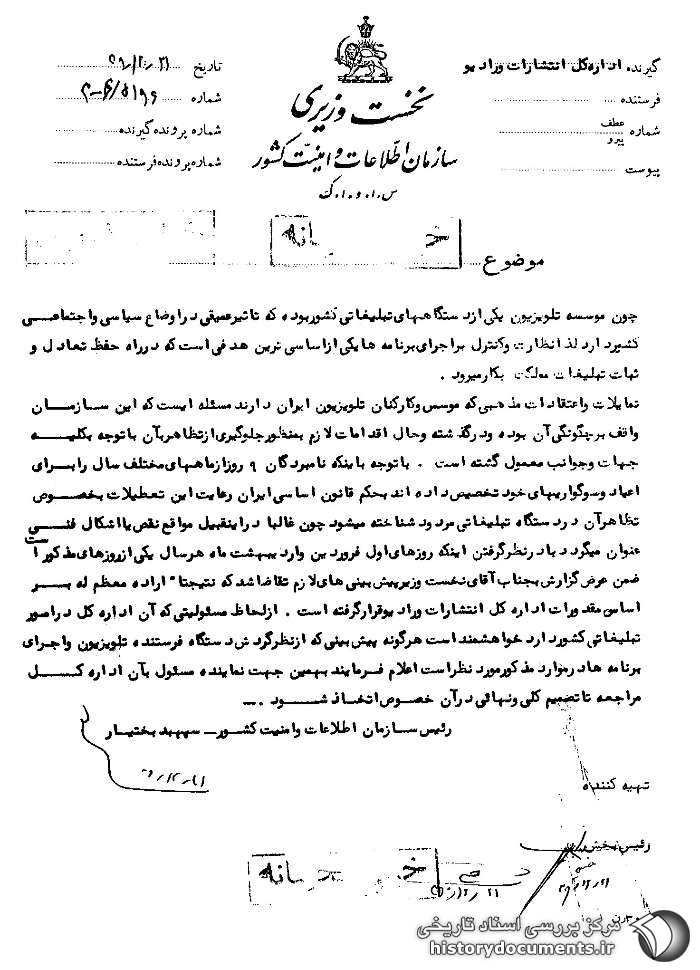 گیرنده اداره کل انتشارات ورادیو
فرستنده
شماره عطف
پیرو
پیوست
نخست وزیری
سازمان اطلاعات و امنیت کشور
س.ا.و.ا.ک
تاریخ
شماره
شماره پرونده گیرنده
شماره پرونده فرستنده
موضوع
چون موسسه تلویزیون یکی ازدستگاههای تبلیغاتی کشوربوده که تاثیرعمیقی دراوضاع سیاسی واجتماعــی
کشوردارد لذا نظارت وکنترل براجرای برنامه ها یکی ازاساسی ترین هدفی است که درراه حفظ تعادل و
ثبات تبلیغات مملکت بکارمیرود .
تمایلات واعتقادات مذهبی که موسس وکارکنان تلویزیون ایران دارند مسئله ایست که این سـازمـان
واقف برچگونگی آن بوده ودرگذشته وحال اقدامات لازم بمنظورجلوگیری ازتظاهربآن باتوجه بکلیـــه
جهات وجوانب معمول گشته است . باتوجه باینکه نامبردگان ۹ روزازماههای مختلف سال رابـرای
اعیاد وسوگواریهای خود تخصیص داده اند بحکم قانون اساسی ایران رعایت این تعـطیلات بخصـوص
تظاهرآن دردستگاه تبلیغاتی مردود شناخته میشود چون غالبا دراینقبیل مواقع نقص یااشکال فنـــی
عنوان میگردد بادرنظرگرفتن اینکه روزهای اول فروردین واردیبهشت ماه هرسال یکی ازروزهای مذکوراست
ضمن عرض گزارش بجناب آقای نخست وزیرپیش بینی های لازم تقاضا شد که نتیجتا" اراده معظم له بـــر
اساس مقدورات اداره کل انتشارات ورادیوقرارگرفته است . ازلحاظ مسئولیتی که آن اداره کل درامور
تبلیغاتی کشوردارد خواهشمند است هرگونه پیش بینی که ازنظرگردش دستگاه فرستنده تلویزیون واجرای
برنامه هادرموارد مذکورمورد نظراست اعلام فـرمایند بهمین جهت نماینده مسئول بآن اداره کـــل
مراجعه تاتصمیم کلی ونهائی درآن خصوص اتخـاذ شـــود .
رئیس سـازمان اطلاعات وامنیت کشـور ــ سپهبد بختیـار
تهیه کننده
رئیس بخش
مرکز بررسی اسناد تاریخی
historydocuments.ir